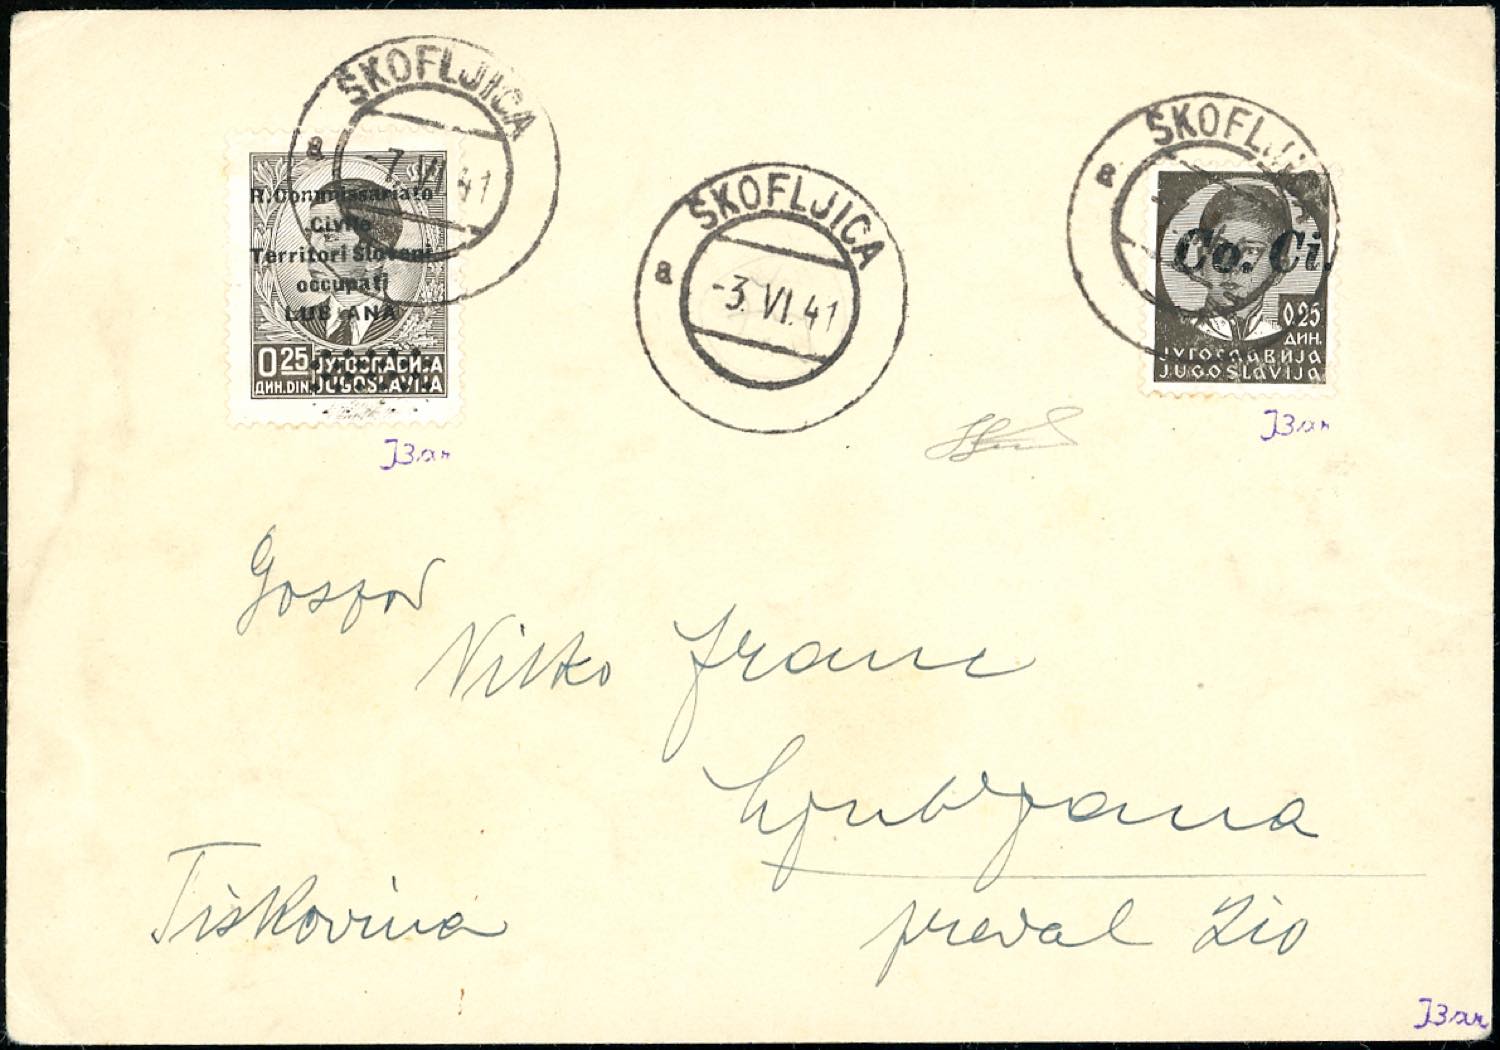 ŠKOFLJICA
a
-7. VI. 41
R. Commissariato
Civile
Territori Sloveni
occupati
LUBIANA
0.25 ЈУГОСЛАВИЈА
ДИН. DIN. JUGOSLAVIJA
ŠKOFLJICA
a
-3. VI. 41
ŠKOFLJICA
a
Co. Ci.
0.25
ДИН.
ЈУГОСЛАВИЈА
JUGOSLAVIJA
Gospod
Franc
Ljubljana
Tiskovina